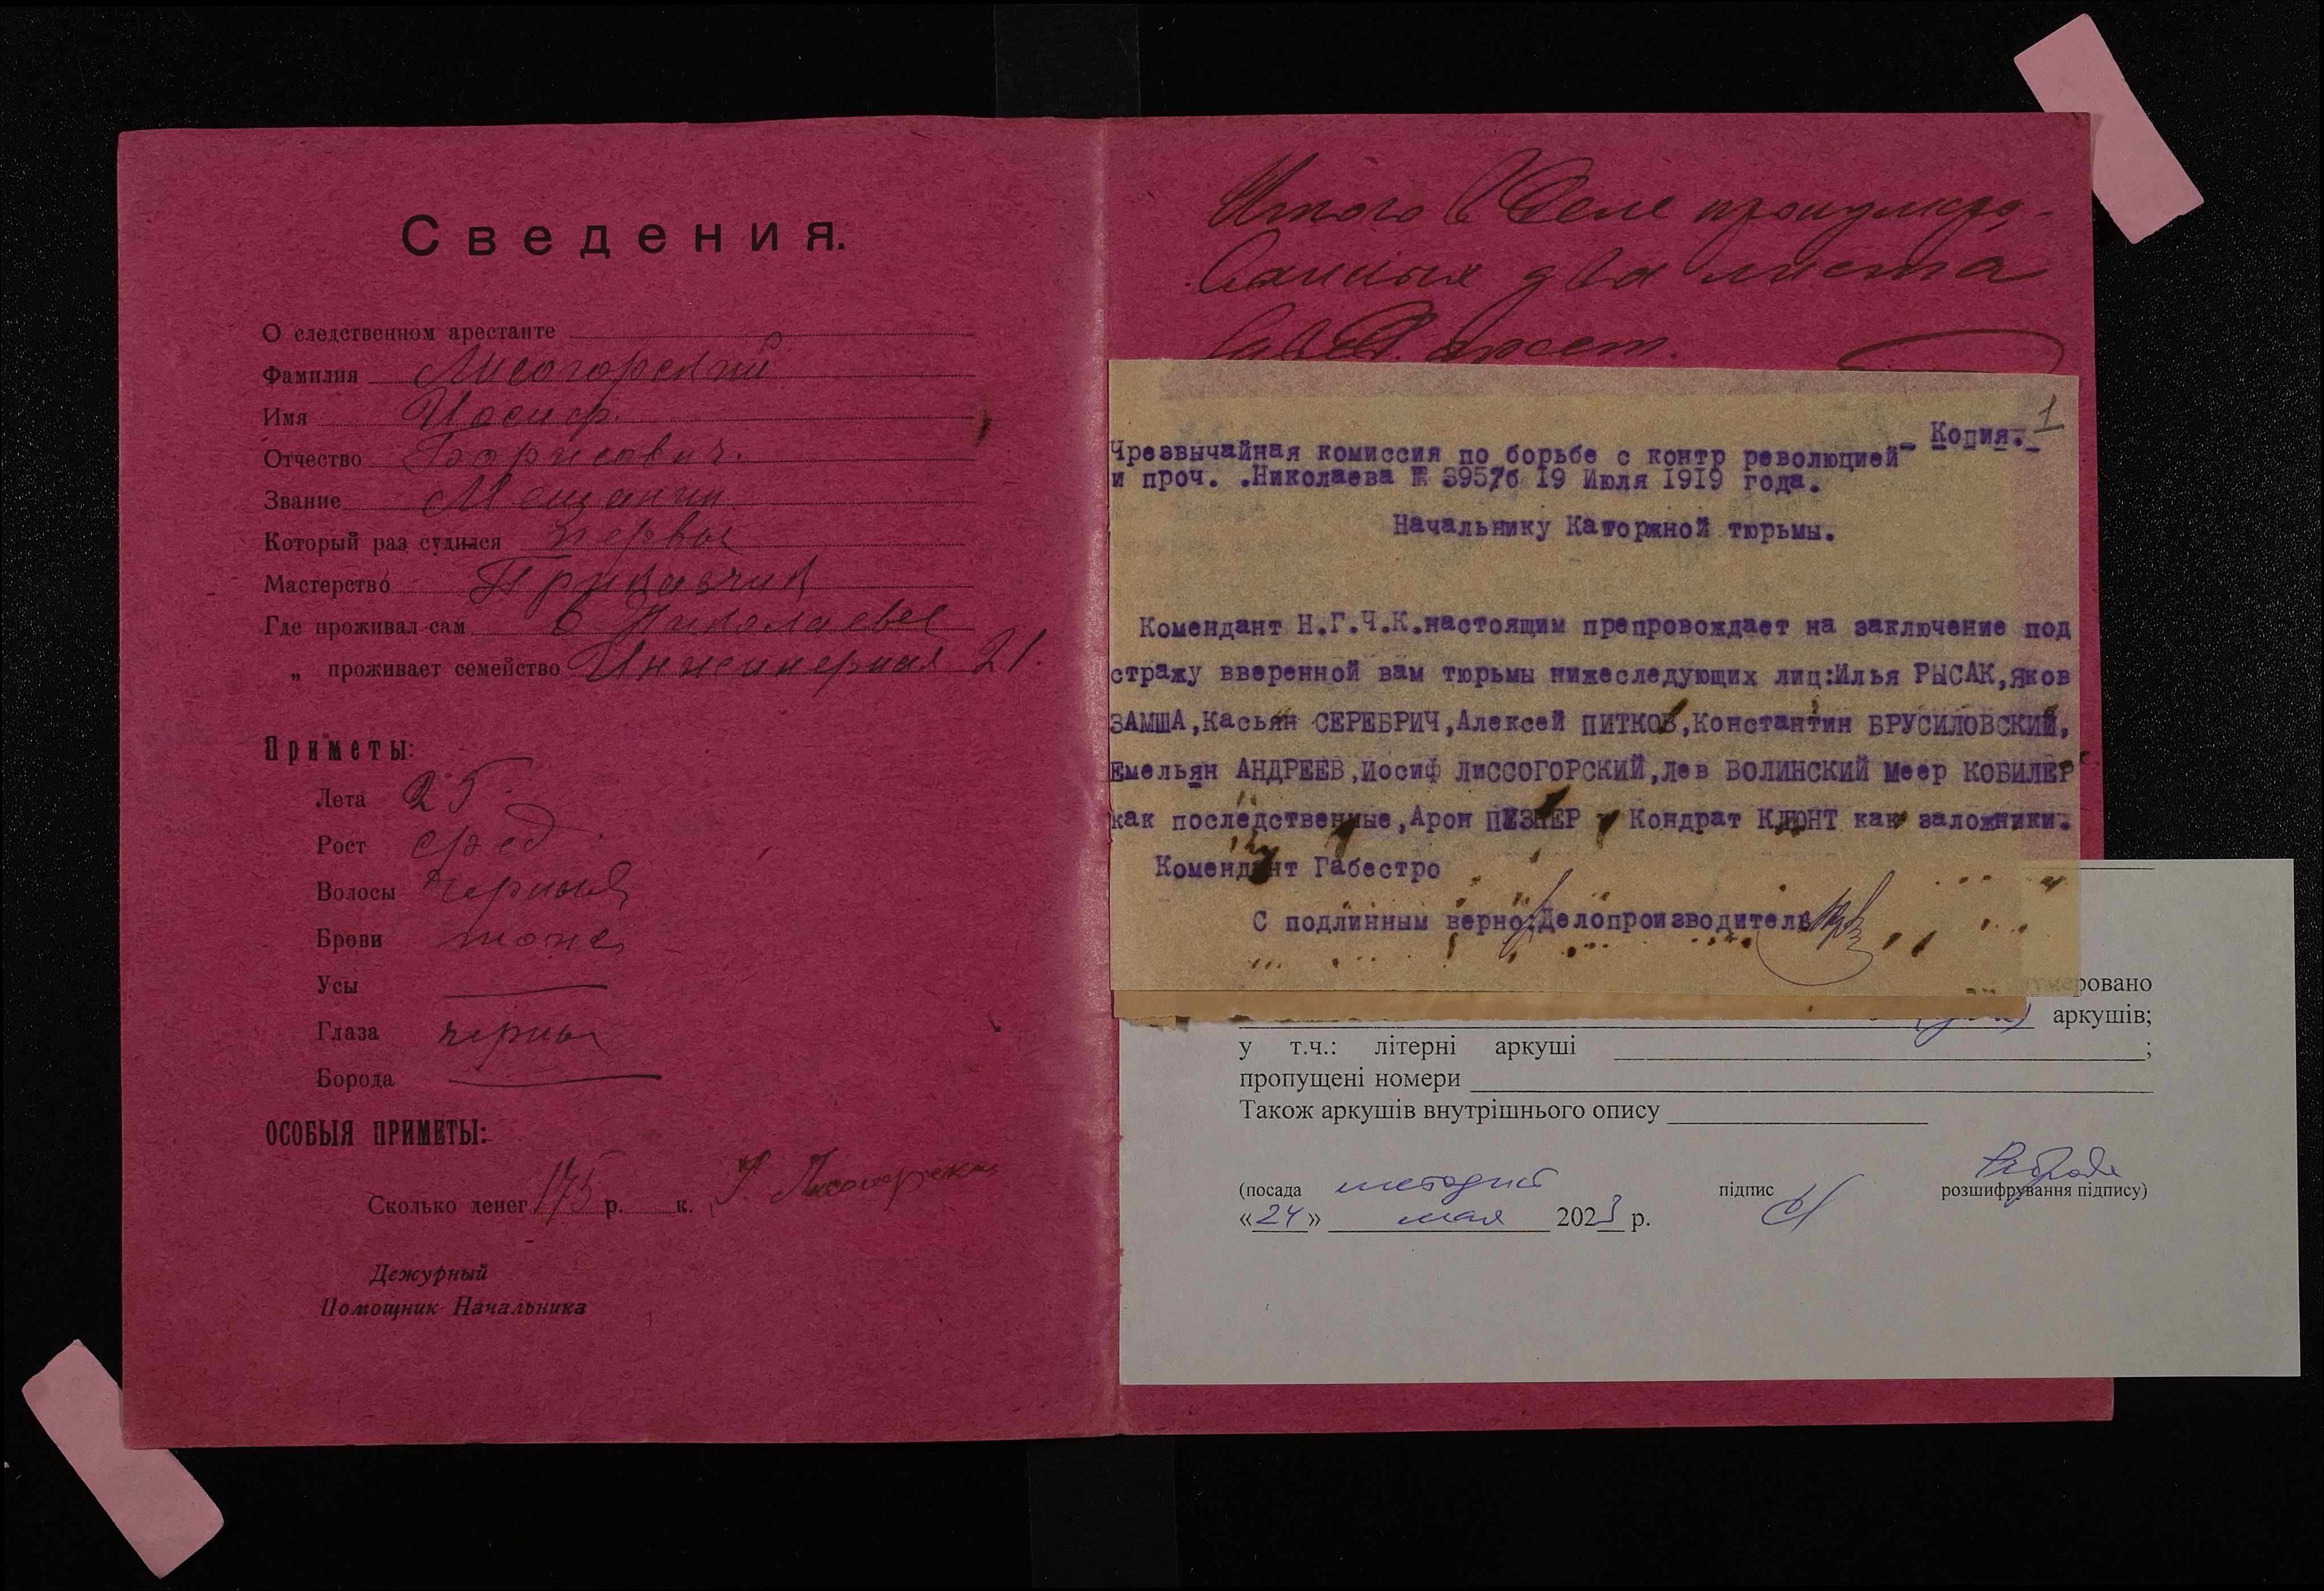 Сведения.
О следственном арестанте
Фамилия Лисогорский
Имя Иосиф.
Отчество Борисович.
Звание Мещанин
Который раз судился первы
Мастерство Приказчик
Где проживал сам в Николаеве
„ проживает семейство Инженерная 21.
Приметы:
Лета 25
Рост сред.
Волосы черныя
Брови тоже
Усы
Глаза черны
Борода
ОСОБЫЯ ПРИМЕТЫ:
Сколько денег 175 р. к.
Дежурный
Помощник Начальника
Итого в деле пронумеро-
ванных два листа
Копия.
1
Чрезвычайная комиссия по борьбе с контр революцией
и проч. .Николаева № 3957б 19 Июля 1919 года.
Начальнику Каторжной тюрьмы.
Комендант Н.Г.Ч.К.настоящим препровождает на заключение под
стражу вверенной вам тюрьмы нижеследующих лиц:Илья РЫСАК,Яков
ЗАМША,Касьян СЕРЕБРИЧ,Алексей ПИТКОВ,Константин БРУСИЛОВСКИЙ,
Емельян АНДРЕЕВ,Иосиф ЛИССОГОРСКИЙ,Лев ВОЛИНСКИЙ Меер КОБИЛЕР
как последственные,Арон ПИЗНЕР Кондрат КЛЮНТ как заложники.
Комендант Габестро
С подлинным верно:Делопроизводитель
аркушів;
у т.ч.: літерні аркуші ;
пропущені номери
Також аркушів внутрішнього опису
(посада методист підпис розшифрування підпису)
«24» мая 2023 р.